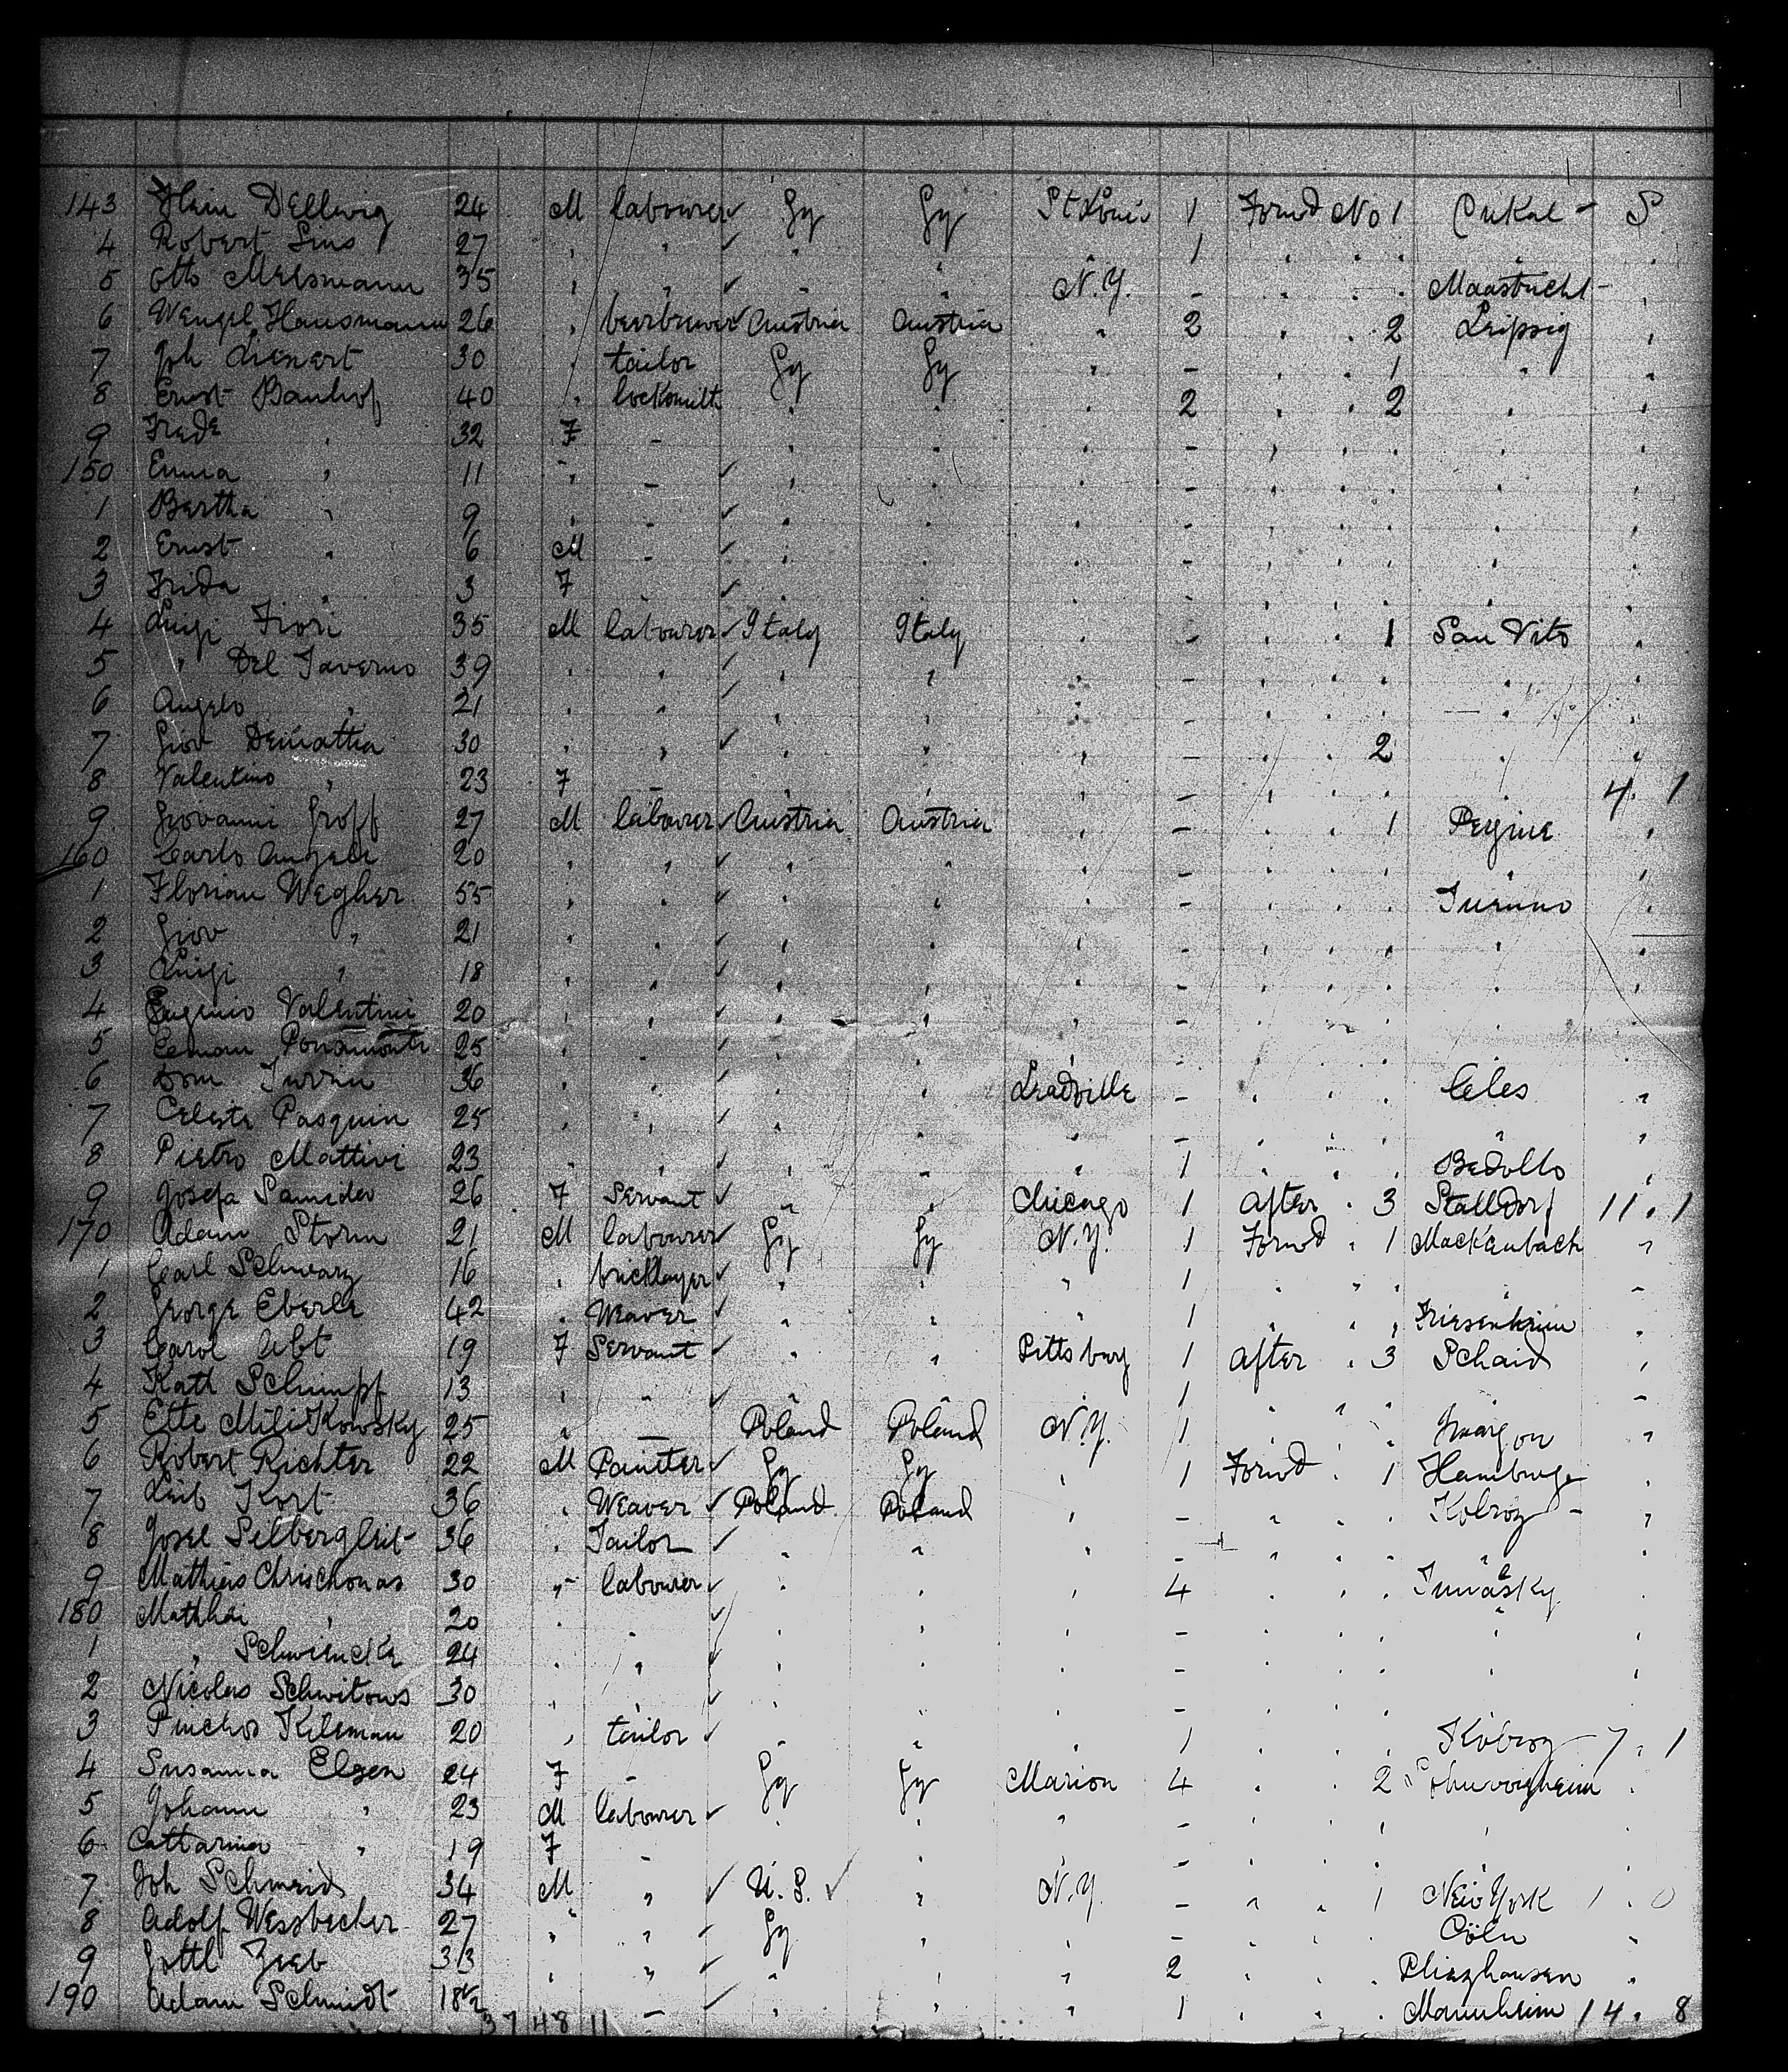 143 Hein Dellwig 24 M labourer ✓ Gy Gy St Louis 1 Forwd No 1 S
4 Robert Sins 27 " " ✓ " " " 1 " " " " "
5 Otto 35 " " ✓ " " N.Y. - " " " Maastricht - "
6 Wenzel Hausmann 26 " beerbrewer ✓ Austria Austria " 2 " " 2 Leipzig "
7 Joh Lienert 30 " tailor Gy Gy " - " " 1 " "
8 Ernst Banhof 40 " locksmith " " " 2 " " 2 " "
9 Frede " 32 F - " " " - " " " " "
150 Emma " 11 " - ✓ " " " - " " " " "
1 Bertha " 9 " - ✓ " " " - " " " " "
2 Ernst " 6 M - ✓ " " " - " " " " "
3 Frida " 3 F ✓ " " " - " " " " "
4 Luigi Fiori 35 M labourer ✓ Italy Italy " - " " 1 San Vito "
5 " Del Taverno 39 " " ✓ " " " - " " " " "
6 Angelo " 21 " " ✓ " " " - " " " " "
7 Giov Demattia 30 " " ✓ " " " - " " 2 " "
8 Valentino " 23 F - " " " - " " " " 4. 1
9 Giovanni Groff 27 M labourer ✓ Austria Austria " - " " 1 Pergine "
160 Carlo Angeli 20 " " ✓ " " " - " " " " "
1 Florian Wegher 55 " " ✓ " " " - " " " "
2 Giov " 21 " " ✓ " " " - " " " " "
3 Luigi " 18 " " ✓ " " " - " " " " "
4 Eugenio Valentini 20 " " ✓ " " " - " " " " "
5 25 " " ✓ " " " - " " " " "
6 Dom 36 " " ✓ " " Leadville - " " " Cles "
7 Celeste Pasquin 25 " " ✓ " " " - " " " " "
8 Pietro Mattivi 23 " " ✓ " " " 1 " " " Bedollo "
9 Josefa 26 F Servant ✓ " " Chicago 1 after " 3 Stalldorf 11. 1
170 Adam Storm 21 M labourer ✓ Gy Gy N.Y. 1 Forwd " 1 Mackenbach "
1 Carl Schwarz 16 " bricklayer ✓ " " " 1 " " " " "
2 George Eberle 42 " Weaver ✓ " " " 1 " " " Friesenheim "
3 Carol Abt 19 F Servant ✓ " " Pittsburg 1 after " 3 Schaid "
4 Kath Schimpf 13 " " ✓ " " " 1 " " " " "
5 Ette Milikowsky 25 " - Poland Poland N.Y. 1 " " " "
6 Robert Richter 22 M Painter ✓ Gy Gy " 1 Forwd " 1 Hamburg "
7 Leib Kort 36 " Weaver ✓ Poland Poland " - " " " - "
8 Josel Silbergleit 36 " Tailor ✓ " " " - " " " " "
9 Mathias Chrischonas 30 " labourer ✓ " " " 4 " " " "
180 Matthai " 20 " " ✓ " " " - " " " " "
1 " Schwiencke 24 " " ✓ " " " - " " " " "
2 Nicolas Schwitows 30 " " ✓ " " " - " " " " "
3 Pinchos Kileman 20 " tailor ✓ " " " 1 " " " 7. 1
4 Susanna Elzen 24 F - Gy Gy Marion 4 " " 2 "
5 Johann " 23 M labourer ✓ " " " - " " " " "
6 Cattarina " 19 F - " " " - " " " " "
7 Joh Schmeid 34 M " ✓ U.S. ✓ " N.Y. - " " 1 New York 1. 0
8 Adolf Wessbecher 27 " " ✓ Gy " " - " " " Cöln "
9 Gottl Zeeb 33 " " ✓ " " " 2 " " " Pliezhausen "
190 Adam Schmidt 18½ " - ✓ " " " 1 " " " Mannheim 14. 8
37 48 11